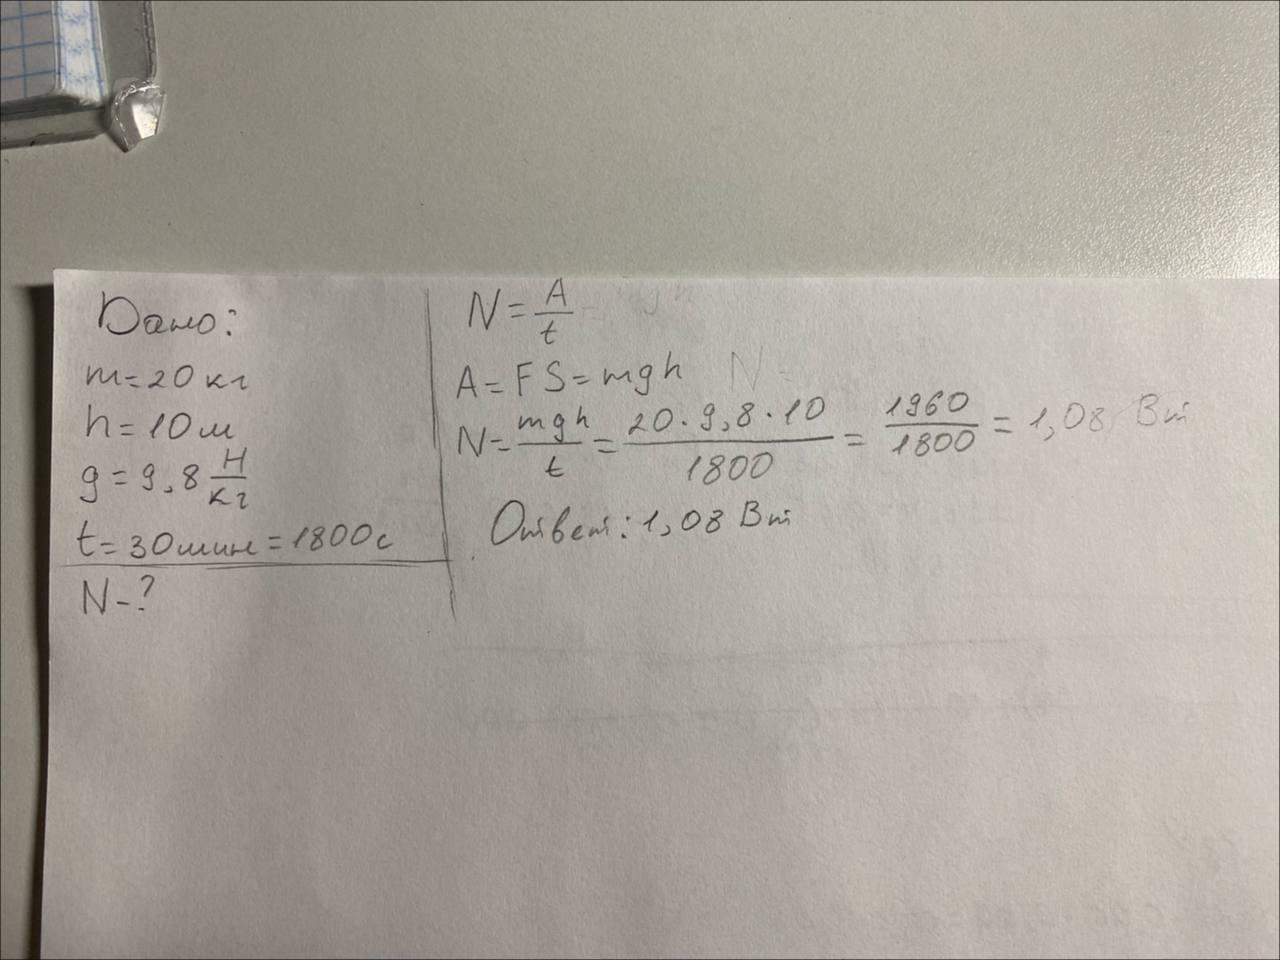 Дано:
m=20 кг
h=10м
g=9,8 Н/кг
t=30мин=1800с
N-?
N=A/t
A=FS=mgh N=
N=mgh/t=20·9,8·10/1800=1960/1800=1,08 Вт
Ответ:1,08 Вт